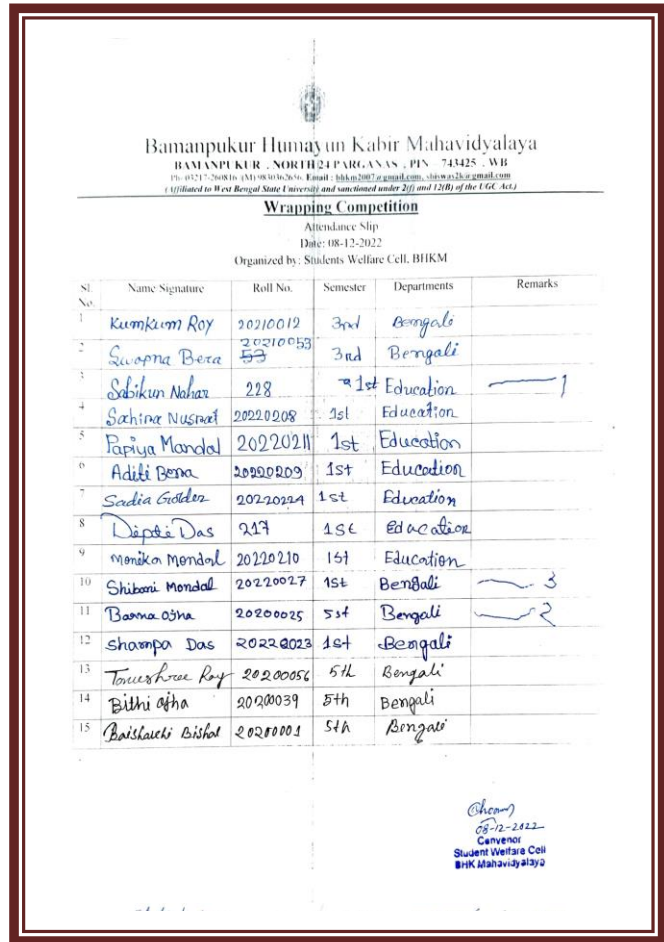 Bamanpukur Humayun Kabir Mahavidyalaya
BAMANPUKUR , NORTH 24 PARGANAS , PIN – 743425 , WB
Ph- 03217-260816 (M) 9830362656, Email : bhkm2007@gmail.com, sbiswas2k@gmail.com
(Affiliated to West Bengal State University and sanctioned under 2(f) and 12(B) of the UGC Act.)
Wrapping Competition
Attendance Slip
Date: 08-12-2022
Organized by: Students Welfare Cell, BHKM
Sl. No. Name Signature Roll No. Semester Departments Remarks
1 Kumkum Roy 20210012 3rd Bengali
2 Swapna Bera 20210053 53 3rd Bengali
3 Sabikun Nahar 228 1st Education 1
4 Sahina Nusrat 20220208 1st Education
5 Papiya Mandal 20220211 1st Education
6 Aditi Bera 20220209 1st Education
7 Sadia Golder 20220224 1st Education
8 Dipti Das 217 1st Education
9 Monika Mondal 20220210 1st Education
10 Shibani Mondal 20220027 1st Bengali 3
11 Barna Ojha 20200025 5st Bengali 2
12 Shampa Das 20220023 1st Bengali
13 Tanushree Roy 20200056 5th Bengali
14 Bithi Ojha 20200039 5th Bengali
15 Baishakhi Bishal 20200001 5th Bengali
08-12-2022
Convenor
Student Welfare Cell
BHK Mahavidyalaya